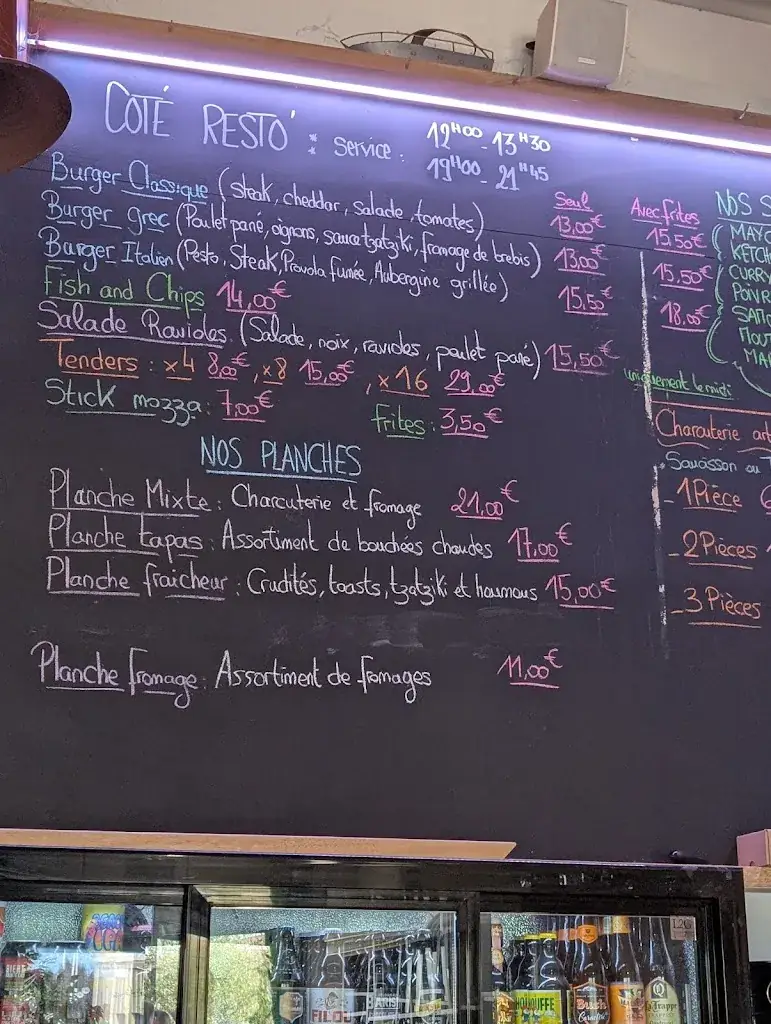 CÔTÉ RESTO' : Service : 12H00 - 13H30
19H00 - 21H45
Seul Avec frites
Burger Classique (Steak, cheddar, Salade, tomates) 13,00€ 15,50€
Burger grec (Poulet pané, oignons, sauce tzatziki, fromage de brebis) 13,00€ 15,50€
Burger Italien (Pesto, Steak, Provola fumée, Aubergine grillée) 15,50€ 18,00€
Fish and Chips 14,00€
Salade Ravioles (Salade, noix, ravioles, poulet pané) 15,50€
uniquement le midi
Tenders : x4 8,00€, x8 15,00€, x16 29,00€
Stick mozza : 7,00€ Frites : 3,50€
NOS PLANCHES
Planche Mixte : Charcuterie et fromage 21,00€
Planche tapas : Assortiment de bouchées chaudes 17,00€
Planche fraîcheur : Crudités, toasts, tzatziki et houmous 15,00€
Planche fromage : Assortiment de fromages 11,00€
NOS
KETCH
CURRY
Charcuterie
Saucisson ou
- 1 Pièce
- 2 Pièces
- 3 Pièces
PARIS
HOUFFE
Bush
Trappe